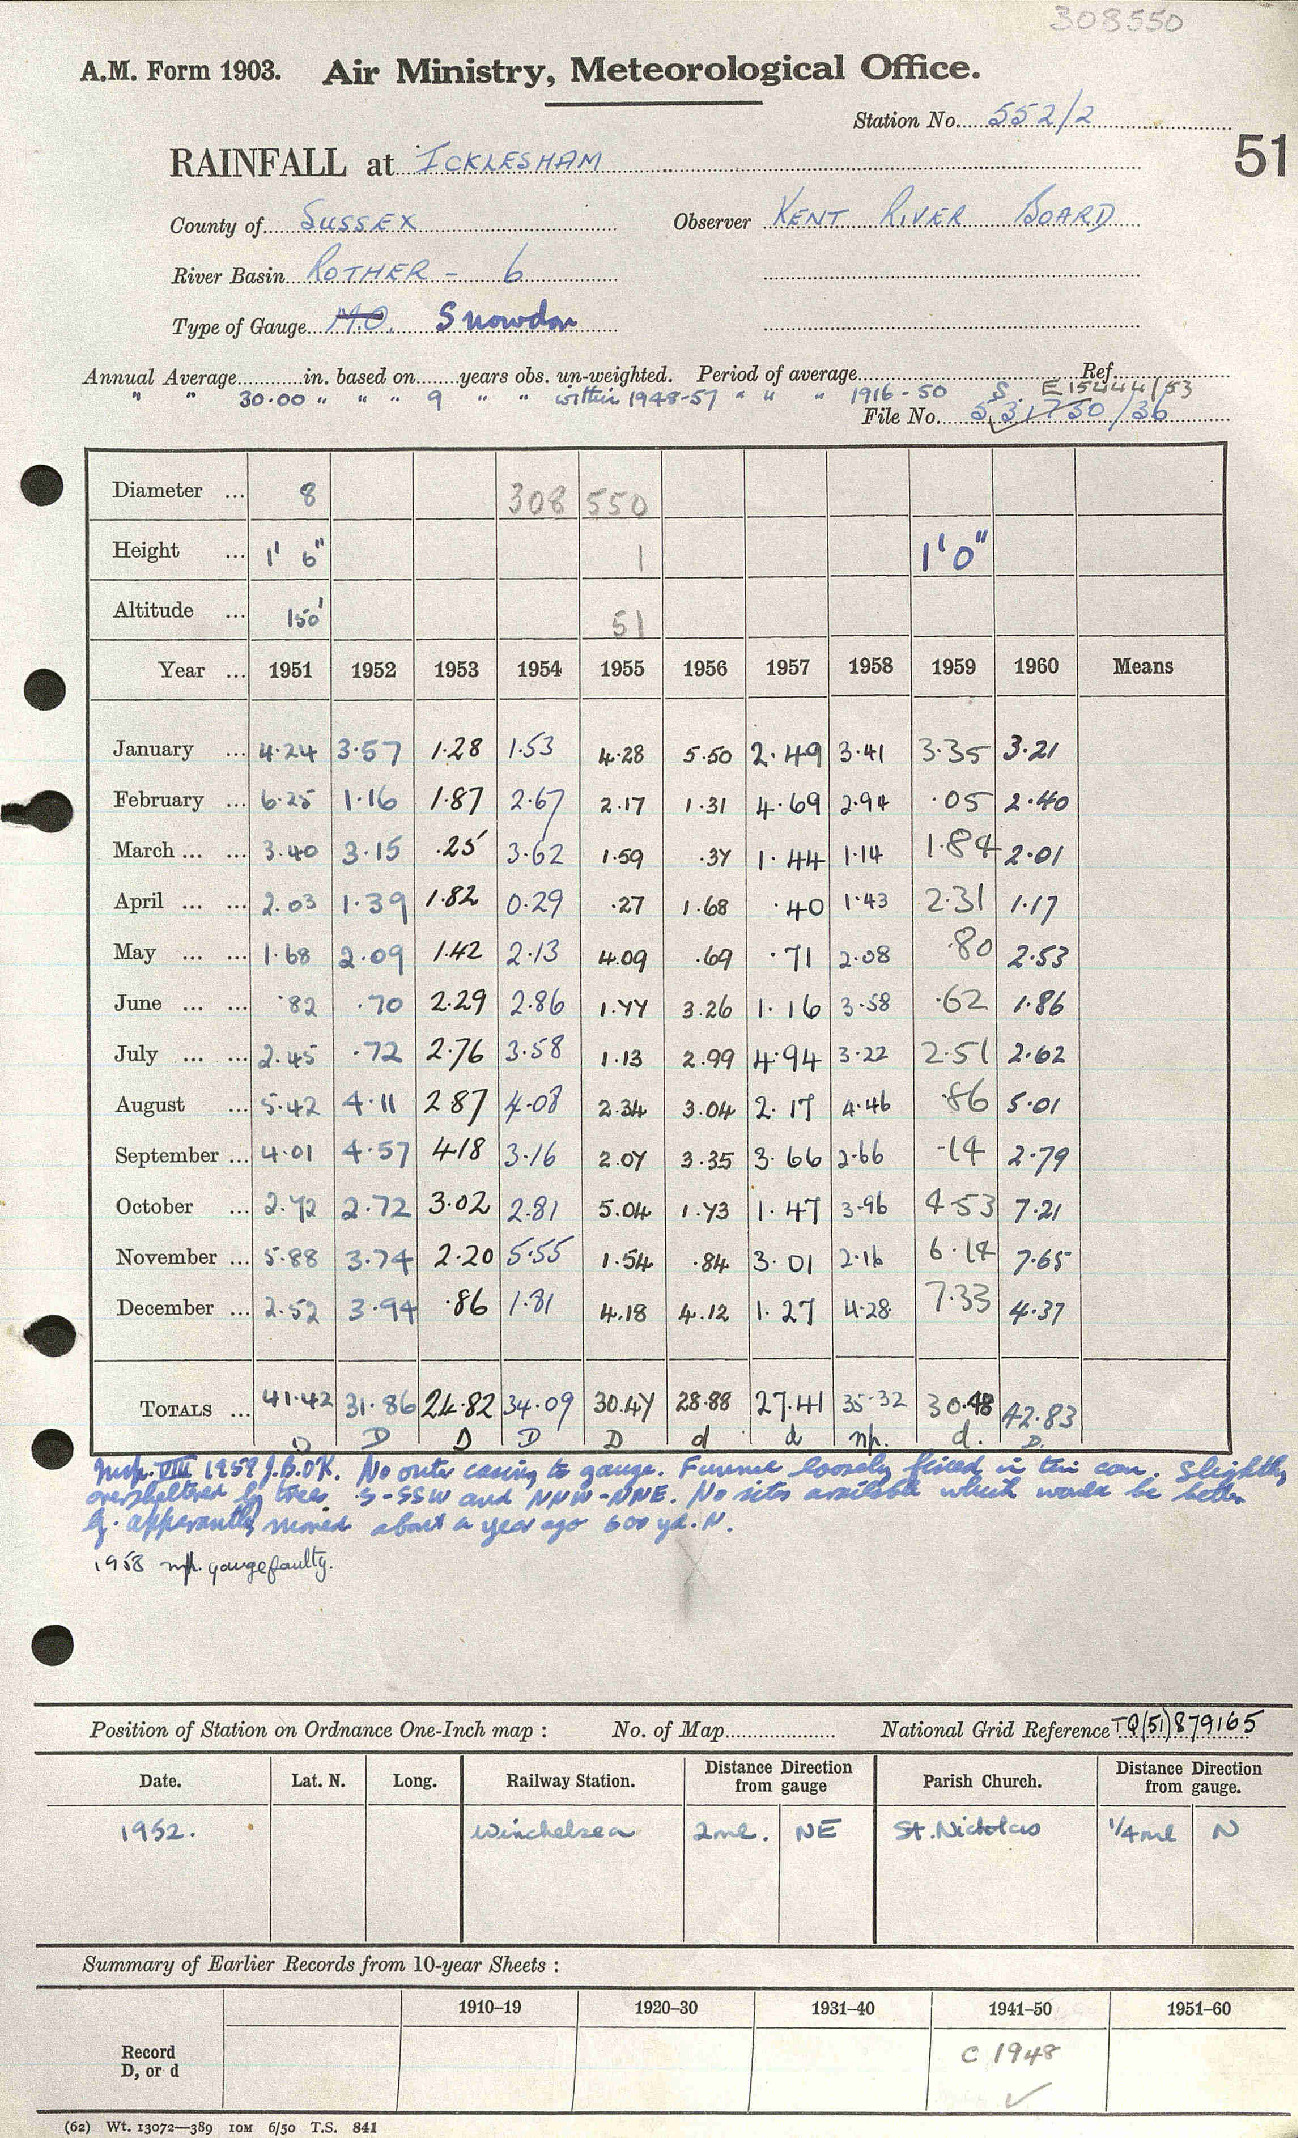 308550
A.M. Form 1903. Air Ministry, Meteorological Office.
Station No. 552/2
51
RAINFALL at ICKLESHAM
County of SUSSEX Observer KENT RIVER BOARD
River Basin ROTHER - 6
Type of Gauge M.O. Snowdon
Annual Average in. based on years obs. un-weighted. Period of average Ref.
" " 30.00 " " " 9 " " within 1948-57 " " " 1916-50 S. E15444/53
File No. S.31750/36
Diameter ... 8 308 550
Height ... 1' 6" 1 1'0"
Altitude ... 150' 51
Year ... 1951 1952 1953 1954 1955 1956 1957 1958 1959 1960 Means
January ... 4.24 3.57 1.28 1.53 4.28 5.50 2.49 3.41 3.35 3.21
February ... 6.25 1.16 1.87 2.67 2.17 1.31 4.69 2.94 .05 2.40
March ... ... 3.40 3.15 .25 3.62 1.59 .37 1.44 1.14 1.84 2.01
April ... ... 2.03 1.39 1.82 0.29 .27 1.68 .40 1.43 2.31 1.17
May ... ... 1.68 2.09 1.42 2.13 4.09 .69 .71 2.08 .80 2.53
June ... ... .82 .70 2.29 2.86 1.77 3.26 1.16 3.58 .62 1.86
July ... ... 2.45 .72 2.76 3.58 1.13 2.99 4.94 3.22 2.51 2.62
August ... 5.42 4.11 2.87 4.08 2.34 3.04 2.17 4.46 .86 5.01
September ... 4.01 4.57 4.18 3.16 2.07 3.35 3.66 2.66 .14 2.79
October ... 2.72 2.72 3.02 2.81 5.04 1.73 1.47 3.96 4.53 7.21
November ... 5.88 3.74 2.20 5.55 1.54 .84 3.01 2.16 6.14 7.65
December ... 2.52 3.94 .86 1.81 4.18 4.12 1.27 4.28 7.33 4.37
TOTALS ... 41.42 31.86 24.82 34.09 30.47 28.88 27.41 35.32 30.48 42.83
D D D D D d d np. d. D.
Insp. VIII 1958 J.B.O'K. No outer casing to gauge. Funnel loosely fixed in tin can. Slightly
oversheltered by trees S-SSW and NNW-NNE. No site available which would be better
G. apparently moved about a year ago 600 yd. N.
1958 np. gauge faulty.
Position of Station on Ordnance One-Inch map : No. of Map National Grid Reference TQ(51)879165
Date. Lat. N. Long. Railway Station. Distance Direction from gauge Parish Church. Distance Direction from gauge.
1952. Winchelsea 2ml. NE St. Nicholas 1/4ml N
Summary of Earlier Records from 10-year Sheets :
1910–19 1920–30 1931–40 1941–50 1951–60
Record D, or d C 1948 ✓
(62) Wt. 13072—389 10M 6/50 T.S. 841